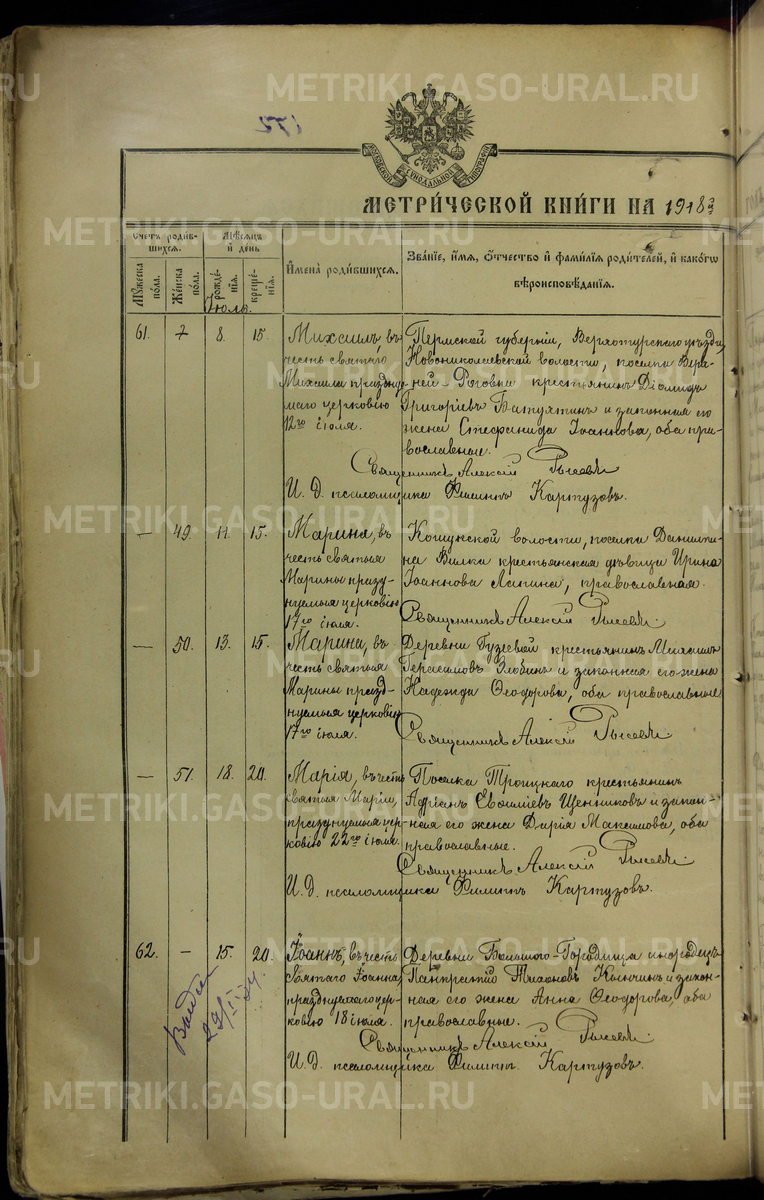 METRIKI.GASO-URAL.RU
172
МОСКОВСКОЙ СѴНОДАЛЬНОЙ ТИПОГРАФІИ
МЕТРИ́ЧЕСКОЙ КНИ́ГИ НА 1918
Счетъ роди́в-
шихся.
Мѣ́сяцъ
и҆ де́нь
Мꙋ́жеска по́ла.
Же́нска по́ла.
рожде́нїѧ.
креще́нїѧ.
И҆мена̀ роди́вшихся.
Зва́нїе, и҆́мѧ, ѻ҆́тчество и҆ фами́лїѧ роди́телей, и҆ како́гѡ
вѣроисповѣ́данїѧ.
Іюль.
61. 8. 15.
Михаилъ, въ
честь святаго
Михаила праздну-
маго церковію
12го іюля.
Пермской губерніи, Верхотурскаго уѣзда,
Новониколаевской волости, поселка Верх-
ней-Роговки крестьянинъ Діомидъ
Григоріевъ и законная его
жена Стефанида Іоаннова, оба пра-
вославные.
Священникъ Алексій
И. Д. псаломщика Филиппъ Картузовъ.
— 49. 11. 15.
Марина, въ
честь святыя
Марины празд-
нуемыя церковію
17го іюля.
Кошукской волости, поселка
крестьянская дѣвица Ирина
Іоаннова Лапина, православная.
Священникъ Алексій
— 50. 13. 15.
Марина, въ
честь святыя
Марины празд-
нуемыя церковію
17го іюля.
Деревни крестьянинъ Михаилъ
Герасимовъ Злобинъ и законная его жена
Надежда Ѳеодорова, оба православные
Священникъ Алексій
— 51. 18. 20.
Марія, въ честь
святыя Маріи,
празднуемыя цер-
ковію 22го іюля.
Поселка Троицкаго крестьянинъ
Адріанъ Евѳиміевъ Щенниковъ и закон-
ная его жена Дарія Максимова, оба
православные.
Священникъ Алексій
И. Д. псаломщика Филиппъ Картузовъ.
62. — 15. 20.
Іоаннъ, въ честь
святаго Іоанна,
празднуемаго цер-
ковію 18 іюля.
Деревни Большого-Городища инородецъ
Панкратій Тихоновъ и закон-
ная его жена Анна Ѳеодорова, оба
православные.
Священникъ Алексій
И. Д. псаломщика Филиппъ Картузовъ.